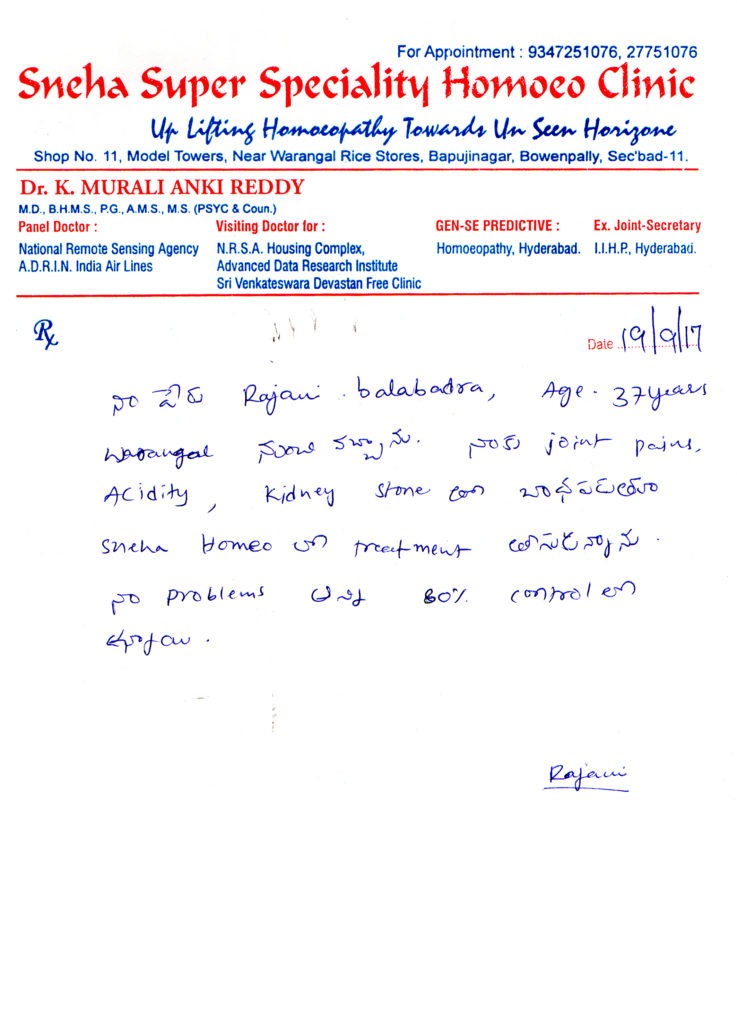 For Appointment : 9347251076, 27751076
Sneha Super Speciality Homoeo Clinic
Up Lifting Homoeopathy Towards Un Seen Horizone
Shop No. 11, Model Towers, Near Warangal Rice Stores, Bapujinagar, Bowenpally, Sec'bad-11.
Dr. K. MURALI ANKI REDDY
M.D., B.H.M.S., P.G., A.M.S., M.S. (PSYC & Coun.)
Panel Doctor :
National Remote Sensing Agency
A.D.R.I.N. India Air Lines
Visiting Doctor for :
N.R.S.A. Housing Complex,
Advanced Data Research Institute
Sri Venkateswara Devastan Free Clinic
GEN-SE PREDICTIVE :
Homoeopathy, Hyderabad.
Ex. Joint-Secretary
I.I.H.P., Hyderabad.
Rx
Date 19/9/17
నా పేరు Rajani balabadra, Age. 37 years
Warangal నుండి వచ్చాను. నాకు joint pains,
Acidity, Kidney stone తో బాధపడుతూ
Sneha Homeo లో treatment తీసుకున్నాను.
నా problems అన్నీ 80% control లో
ఉన్నాయి.
Rajani